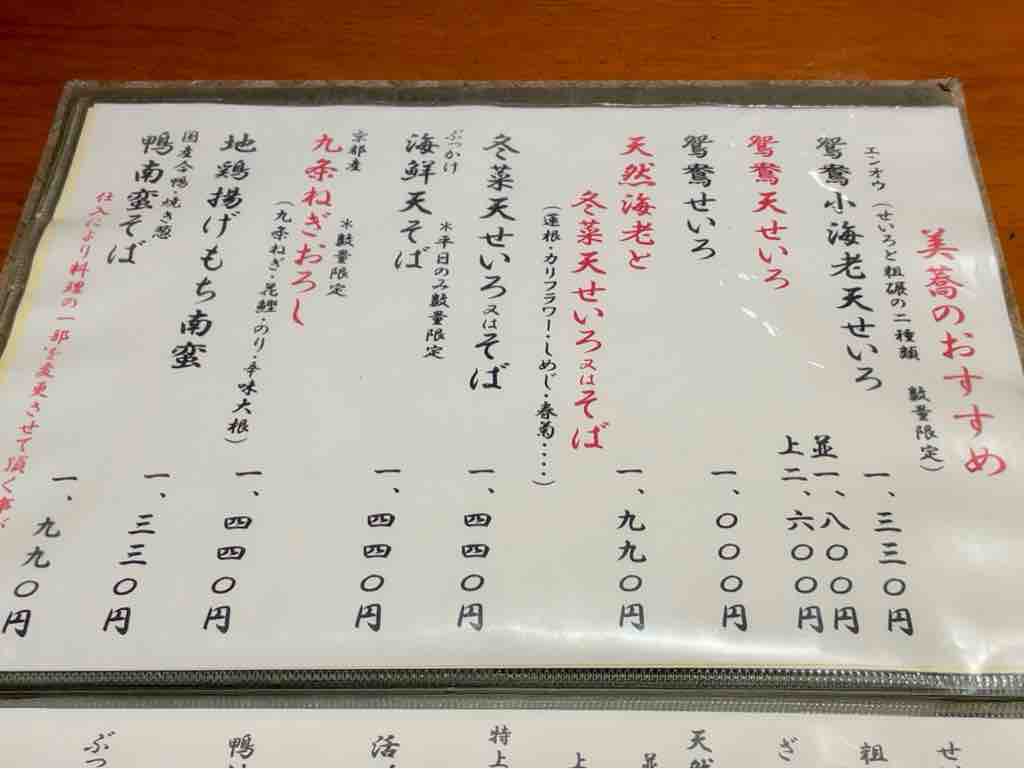 美蕎のおすすめ
エンオウ(せいろと粗碾の二種類 数量限定)
鴛鴦小海老天せいろ 一、三三〇円
鴛鴦天せいろ 並一、八〇〇円
上二、六〇〇円
鴛鴦せいろ 一、〇〇〇円
天然海老と
冬菜天せいろ又はそば 一、九九〇円
(蓮根・カリフラワー・しめじ・春菊・・・・)
冬菜天せいろ又はそば 一、四四〇円
ぶっかけ ※平日のみ数量限定
海鮮天そば 一、四四〇円
京都産 ※数量限定
九条ねぎおろし 一、四四〇円
(九条ねぎ・花鰹・のり・辛味大根)
地鶏揚げもち南蛮 一、三三〇円
国産合鴨・焼き葱
鴨南蛮そば 一、九九〇円
仕入により料理の一部を変更させて頂く事が
せ
粗
ぎ
天然
並
上
特上
活
鴨
ぶっ